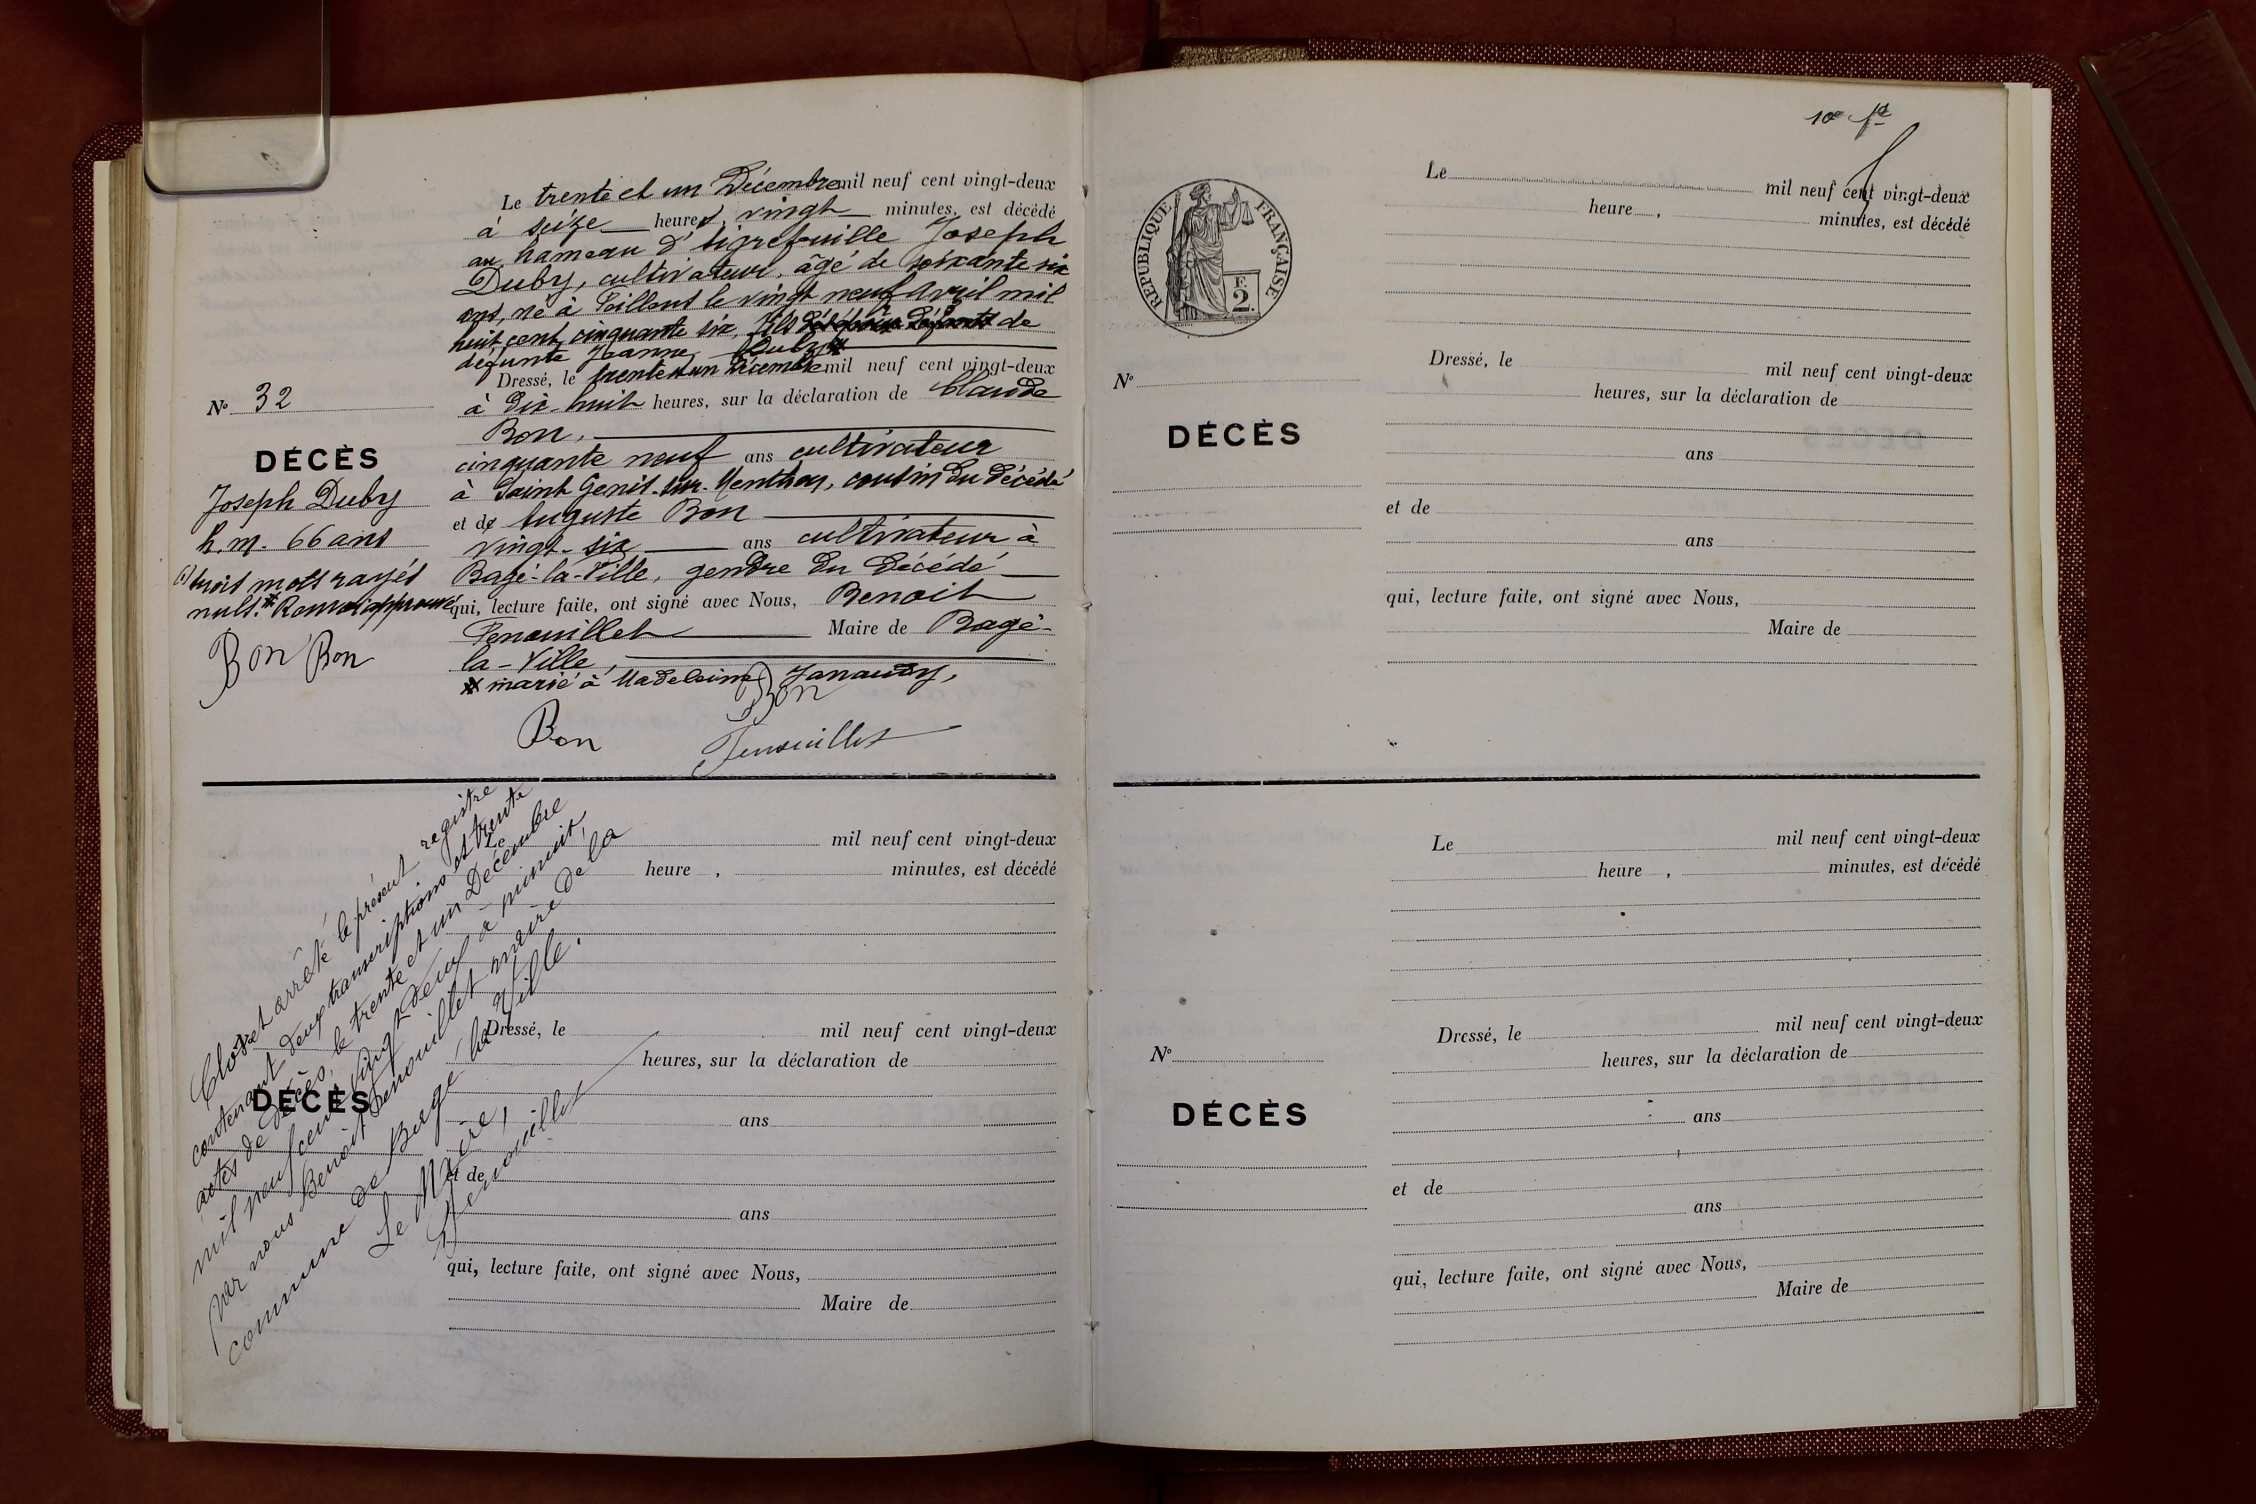 Le trente et un Décembre mil neuf cent vingt-deux
à seize heures, vingt minutes, est décédé
au hameau d'Aigrefeuille Joseph
Duby, cultivateur, âgé de soixante six
ans, né à Saillans le vingt neuf avril mil
huit cent cinquante six, fils de
défunte Jeanne Duby *
Dressé, le trente et un Décembre mil neuf cent vingt-deux
à dix-huit heures, sur la déclaration de Claude
Bon,
cinquante neuf ans cultivateur
à Saint Genis-sur-Menthon, cousin du décédé
et de Auguste Bon
vingt-six ans cultivateur à
Bagé-la-Ville, gendre du décédé
qui, lecture faite, ont signé avec Nous, Benoit
Fenouillet Maire de Bagé-
la-Ville,
* marié à Madeleine Janaudy,
Bon
Bon
Fenouillet
No 32
DÉCÈS
Joseph Duby
h. m. 66 ans
(1) trois mots rayés
nuls. * Renvoi approuvé
Bon Bon
Le mil neuf cent vingt-deux
heure , minutes, est décédé
Dressé, le mil neuf cent vingt-deux
heures, sur la déclaration de
ans
et de
ans
qui, lecture faite, ont signé avec Nous,
Maire de
DÉCÈS
Clos et arrêté le présent registre
contenant deux transcriptions et trente
actes de décès, le trente et un Décembre
mil neuf cent vingt deux à minuit,
par nous Benoit Fenouillet maire de la
commune de Bagé la Ville.
Le Maire,
Fenouillet
RÉPUBLIQUE FRANÇAISE
F.
2.
Le mil neuf cent vingt-deux
heure , minutes, est décédé
Dressé, le mil neuf cent vingt-deux
heures, sur la déclaration de
ans
et de
ans
qui, lecture faite, ont signé avec Nous,
Maire de
No
DÉCÈS
Le mil neuf cent vingt-deux
heure , minutes, est décédé
Dressé, le mil neuf cent vingt-deux
heures, sur la déclaration de
ans
et de
ans
qui, lecture faite, ont signé avec Nous,
Maire de
No
DÉCÈS